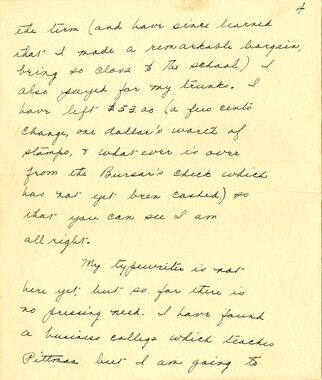 4
the term (and have since learned
that I made a remarkable bargain,
being so close to the school.) I
also payed for my trunks. I
have left $53.00 (a few cents
change, one dollar's worth of
stamps, & what ever is over
from the Bursar's check which
has not yet been cashed,) so
that you can see I am
all right.
My typewriter is not
here yet, but so far there is
no pressing need. I have found
a business college which teaches
Pittman but I am going to